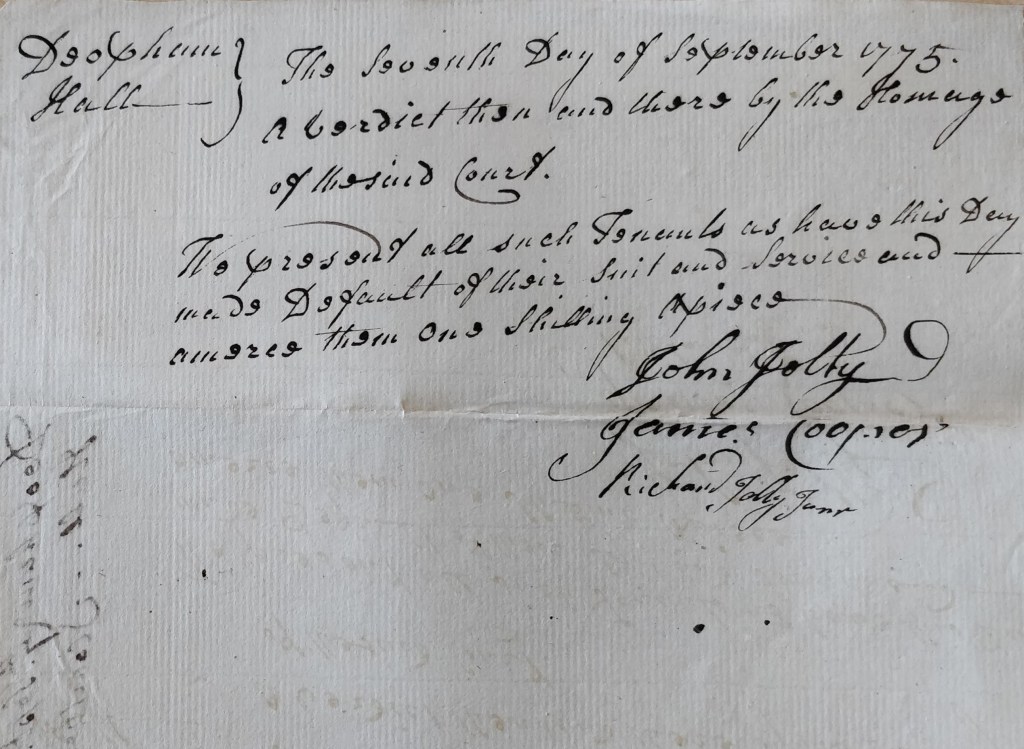 Deopham
Hall
The Seventh Day of September 1775.
A Verdict then and there by the Homage
of the said Court.
We present all such Tenants as have this Day
made Default of their Suit and Service and
amerce them One Shilling Apiece
John Jolly
James Cooper
Richard Jolly Junr